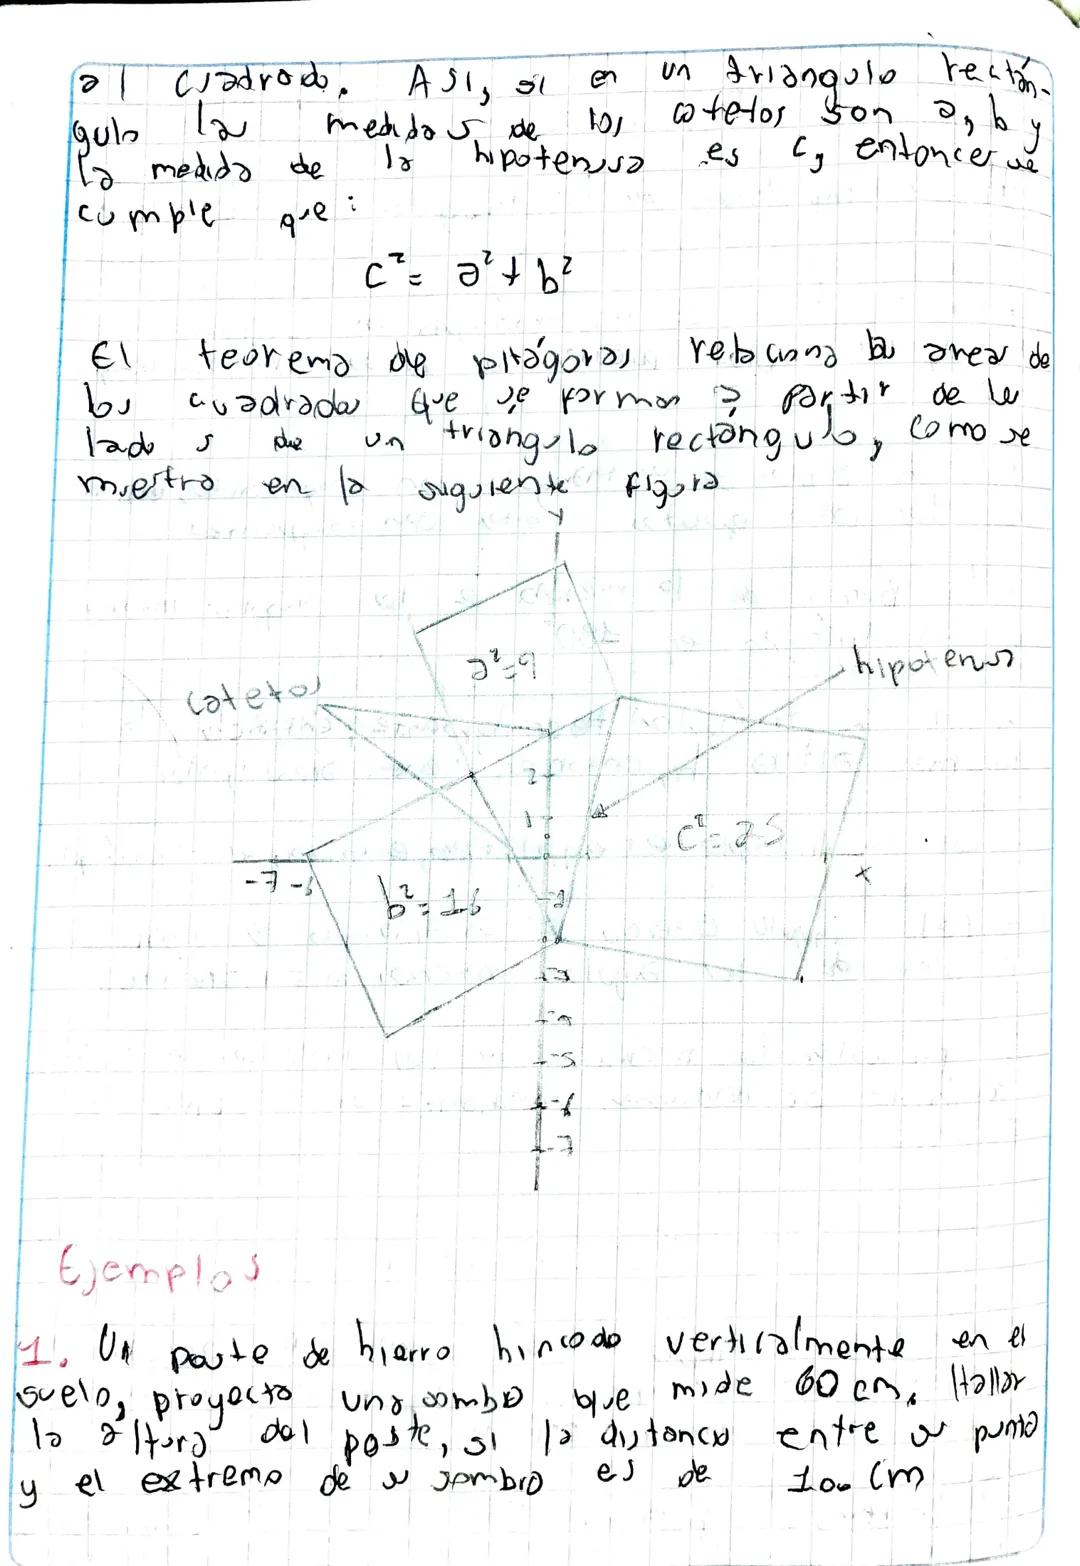 al cuadrado. Así, si en un triángulo rectán-
gulo la medidas de los catetos son a, b y
la medida de la hipotenusa es c, entonces se
cumple que:
c² = a² + b²
El teorema de pitágoras relaciona la areas de
los cuadrados que se forman a partir de los
lados de un triangulo rectángulo, como se
muestra en la siguiente figura
y
a²=9
hipotenusa
catetos
2
1
c²=25
x
-7 -6
b²=16
-5
-6
-7
Ejemplos
1. Un poste de hierro hincado verticalmente en el
suelo, proyecta una sombra que mide 60 cm. Hallar
la altura del poste, si la distancia entre su punta
y el extremo de su sombra es de 100 cm